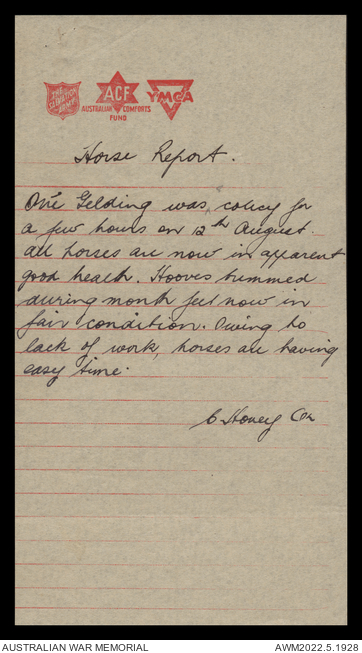 THE SALVATION ARMY
ACF
AUSTRALIAN COMFORTS
FUND
YMCA
Horse Report.
One Gelding was colicy for
a few hours on 12th August.
all horses are now in apparent
good health. Hooves trimmed
during month feet now in
fair condition. Owing to
lack of work, horses are having
easy time.
C Honey
AUSTRALIAN WAR MEMORIAL
AWM2022.5.1928